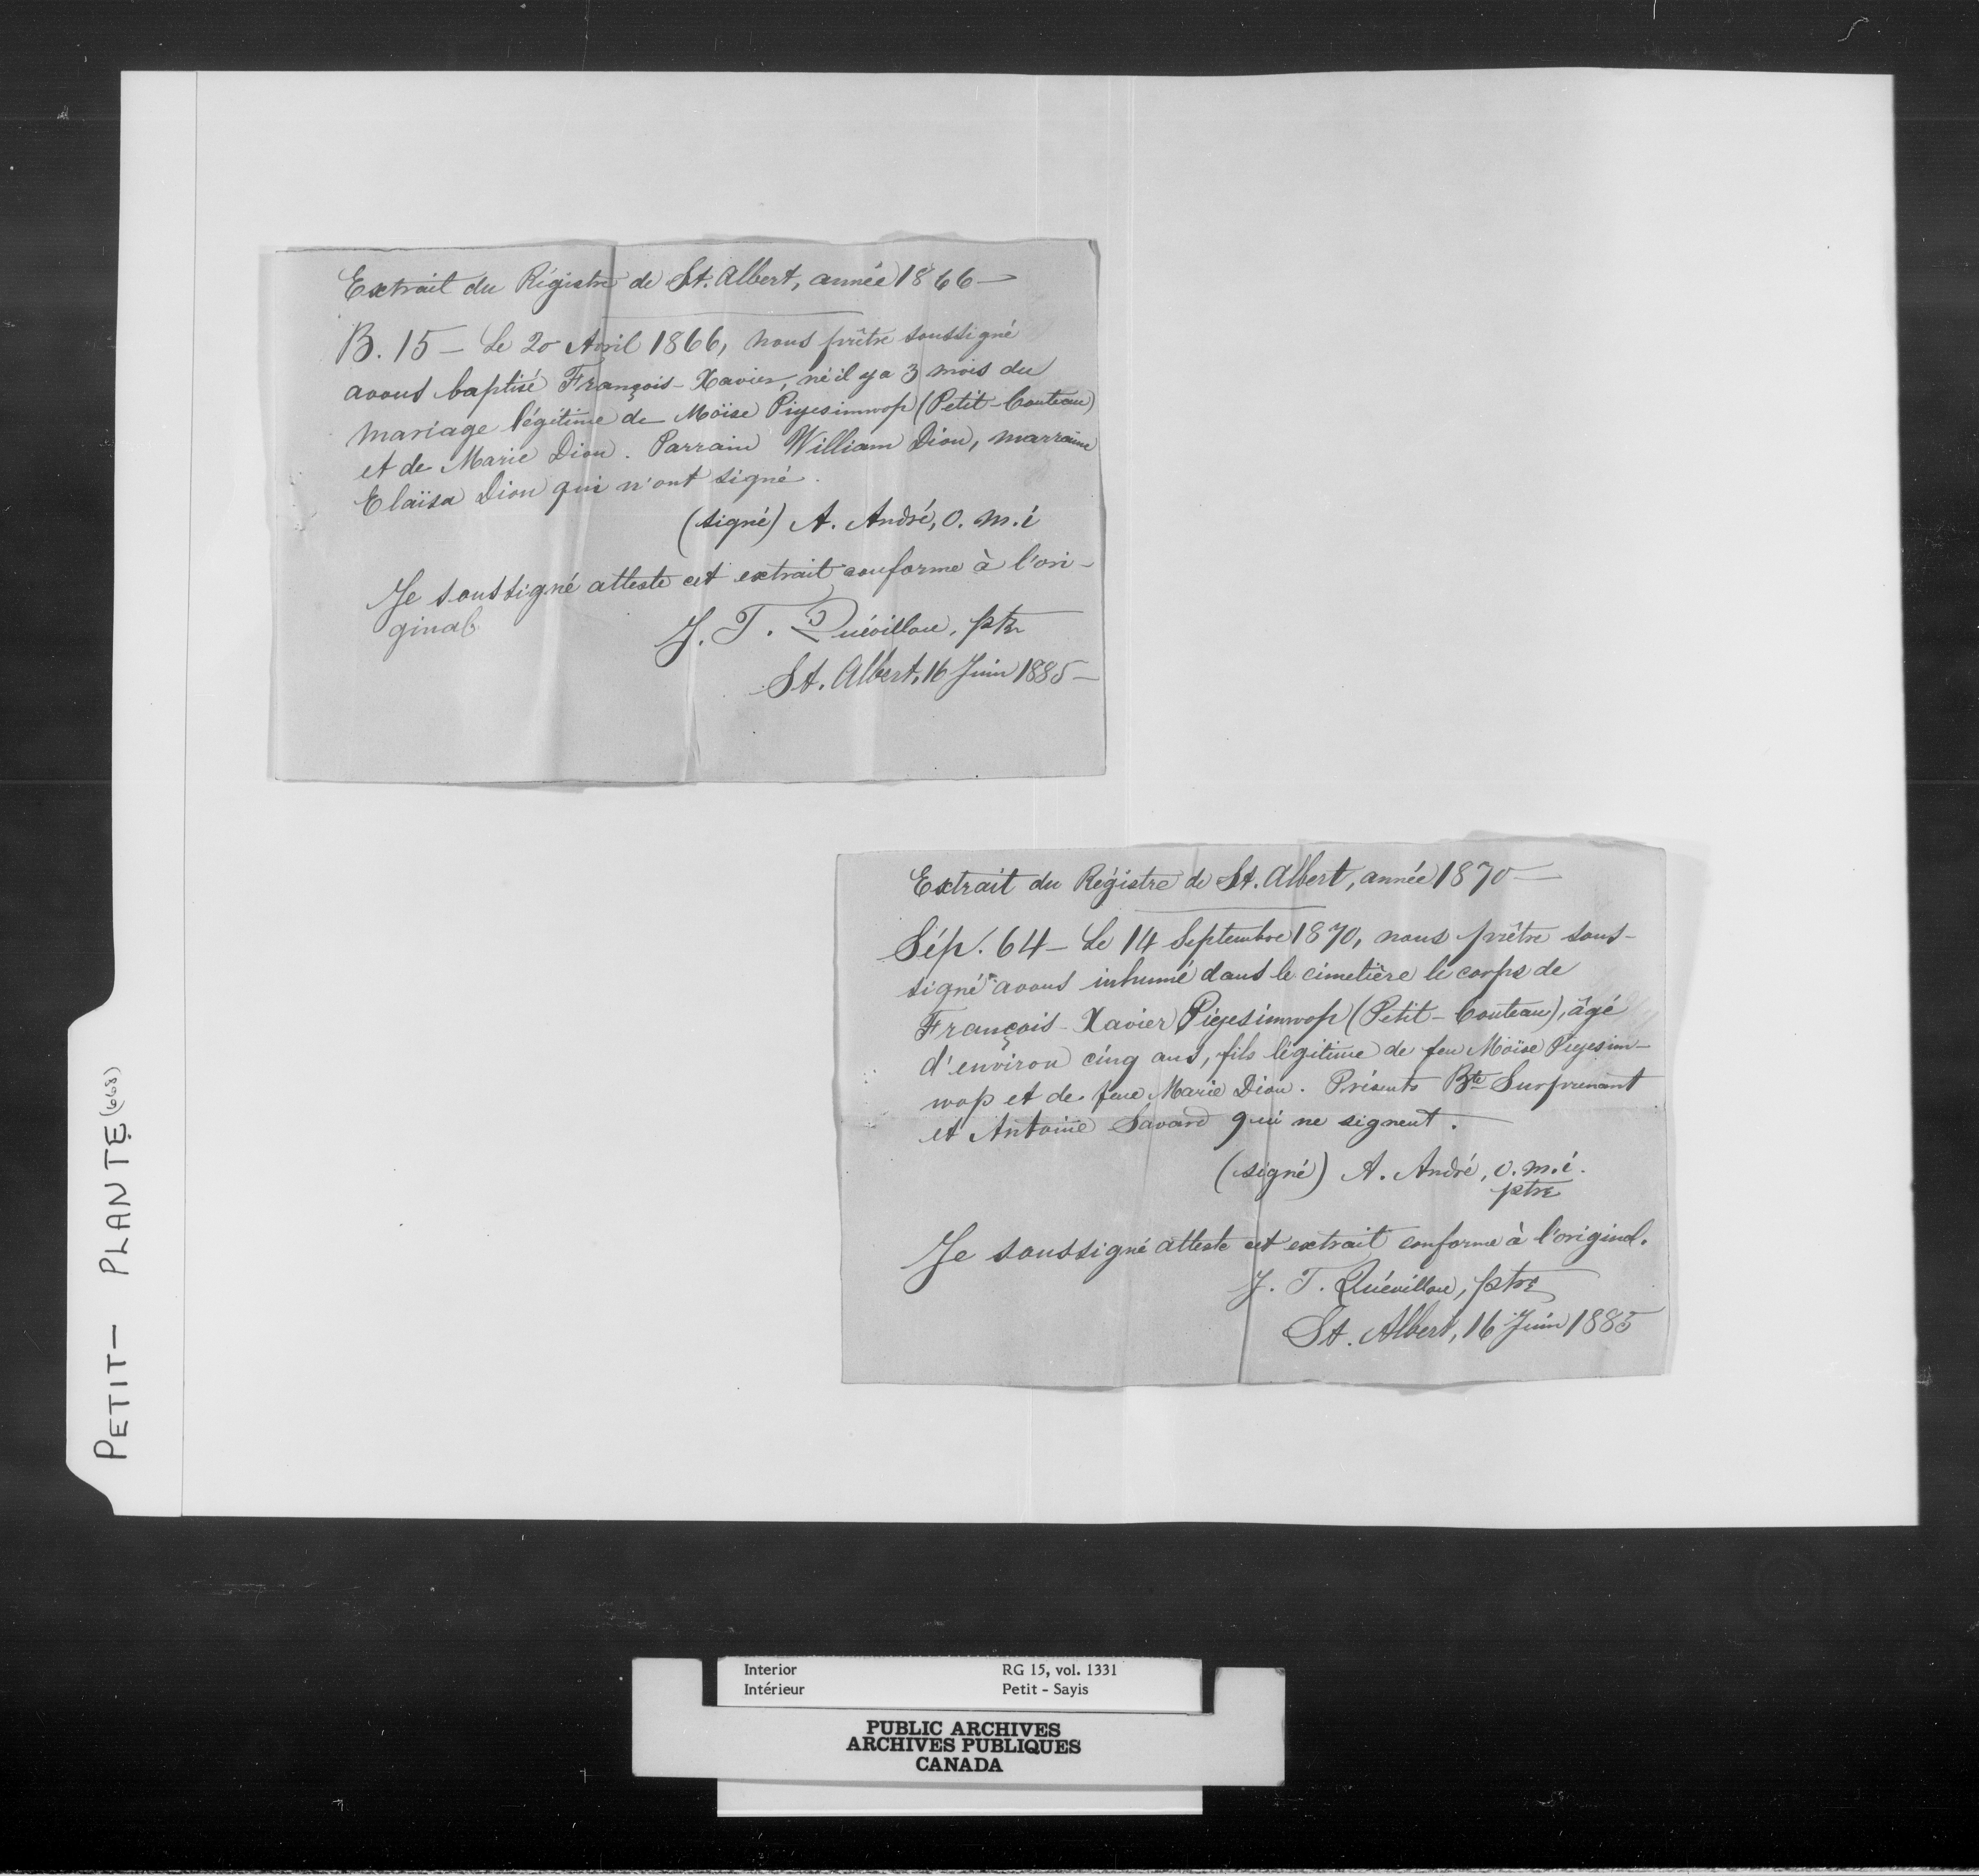 Extrait du Régistre de St. Albert, année 1866 —
B. 15 — Le 20 Avril 1866, nous prêtre soussigné
avons baptisé François-Xavier, né il y a 3 mois du
mariage légitime de Moïse Piyesimwop (Petit-Couteau)
et de Marie Dion. Parrain William Dion, marraine
Elaïsa Dion qui n'ont signé.
(signé) A. André, o. m. i
Je soussigné atteste cet extrait conforme à l'ori-
ginal
J. T. Quévillon, ptre
St. Albert, 16 Juin 1885 —
Extrait du Régistre de St. Albert, année 1870 —
Sép. 64 — Le 14 Septembre 1870, nous prêtre sous-
signé avons inhumé dans le cimetière le corps de
François-Xavier Piyesimwop (Petit-Couteau), âgé
d'environ cinq ans, fils légitime de feu Moïse Piyesim-
wop et de feue Marie Dion. Présents Bte Surprenant
et Antoine Savard qui ne signent.
(signé) A. André, o. m. i.
ptre
Je soussigné atteste cet extrait conforme à l'original.
J. T. Quévillon, ptre
St. Albert, 16 Juin 1885
PETIT — PLANTE (668)
Interior RG 15, vol. 1331
Intérieur Petit - Sayis
PUBLIC ARCHIVES
ARCHIVES PUBLIQUES
CANADA